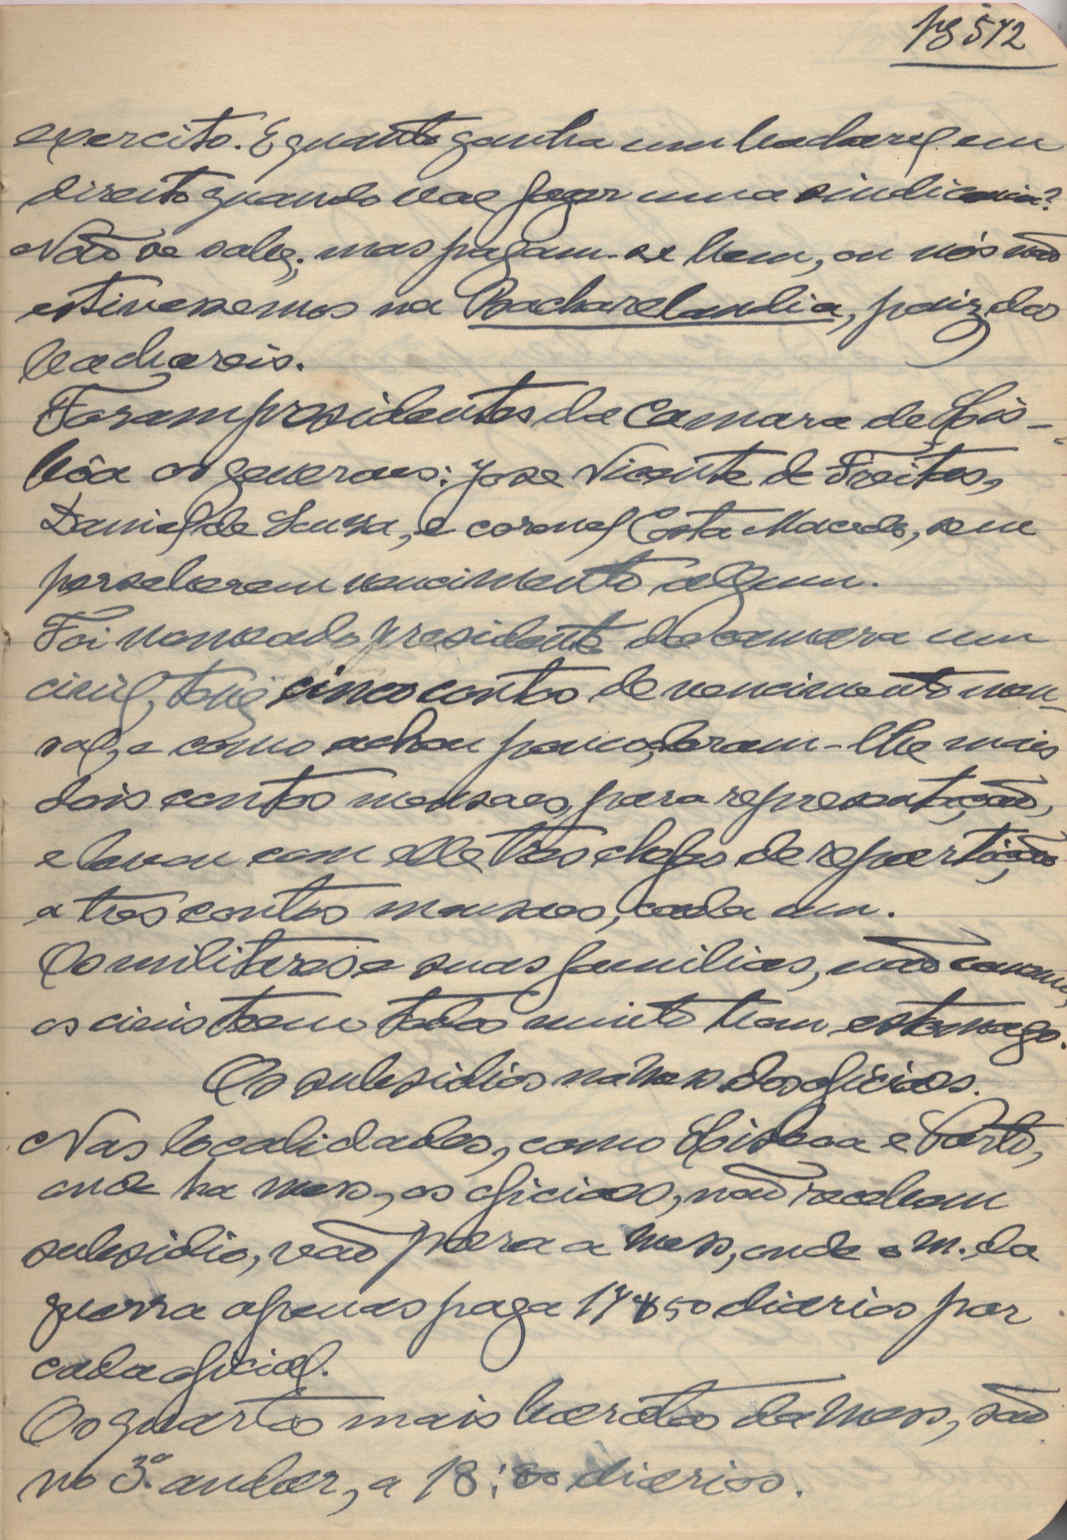 pg 572
exercito. E quanto ganha um bacharel em
direito quando vae fazer uma sindicancia?
Não se sabe, mas pagam-se bem, ou nós não
estivessemos na Bacharelandia, paiz dos
bachareis.
Foram presidentes da Camara de Lis-
bôa os generaes: José Vicente de Freitas,
Daniel de Sousa, e coronel Costa Macedo, sem
perceberem vencimento algum.
Foi nomeado presidente da camara um
civil, teve cinco contos de vencimento men-
sal, e como achou pouco, deram-lhe mais
dois contos mensaes, para representação,
e levou com elle tres chefes de repartição
a tres contos mensaes, cada um.
Os militares e suas familias, não comem,
os civis teem todos muito bom estomago.
Os subsidios na mess dos oficiaes.
Nas localidades, como Lisboa e Porto,
onde ha mess, os oficiaes, não recebem
subsidio, vão para a mess, onde o m. da
guerra apenas paga 17$50 diarios por
cada oficial.
Os quartos mais baratos da mess, são
no 3º. andar, a 18:00 diarios.